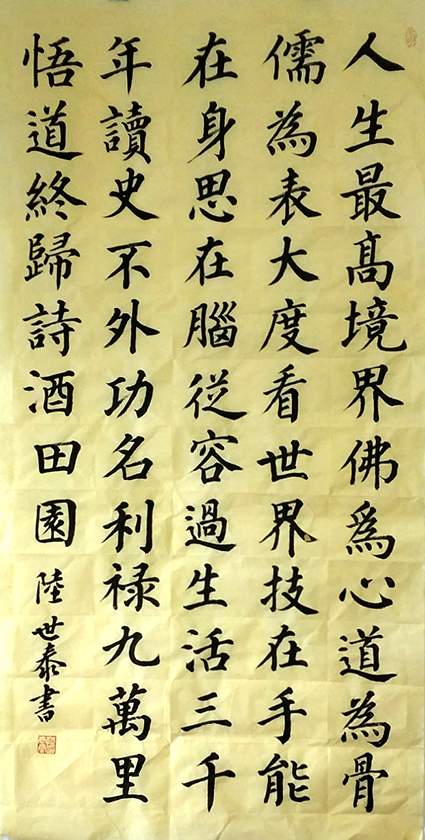 人生最高境界佛為心道為骨
儒為表大度看世界技在手能
在身思在腦從容過生活三千
年讀史不外功名利祿九萬里
悟道終歸詩酒田園
陸世泰書